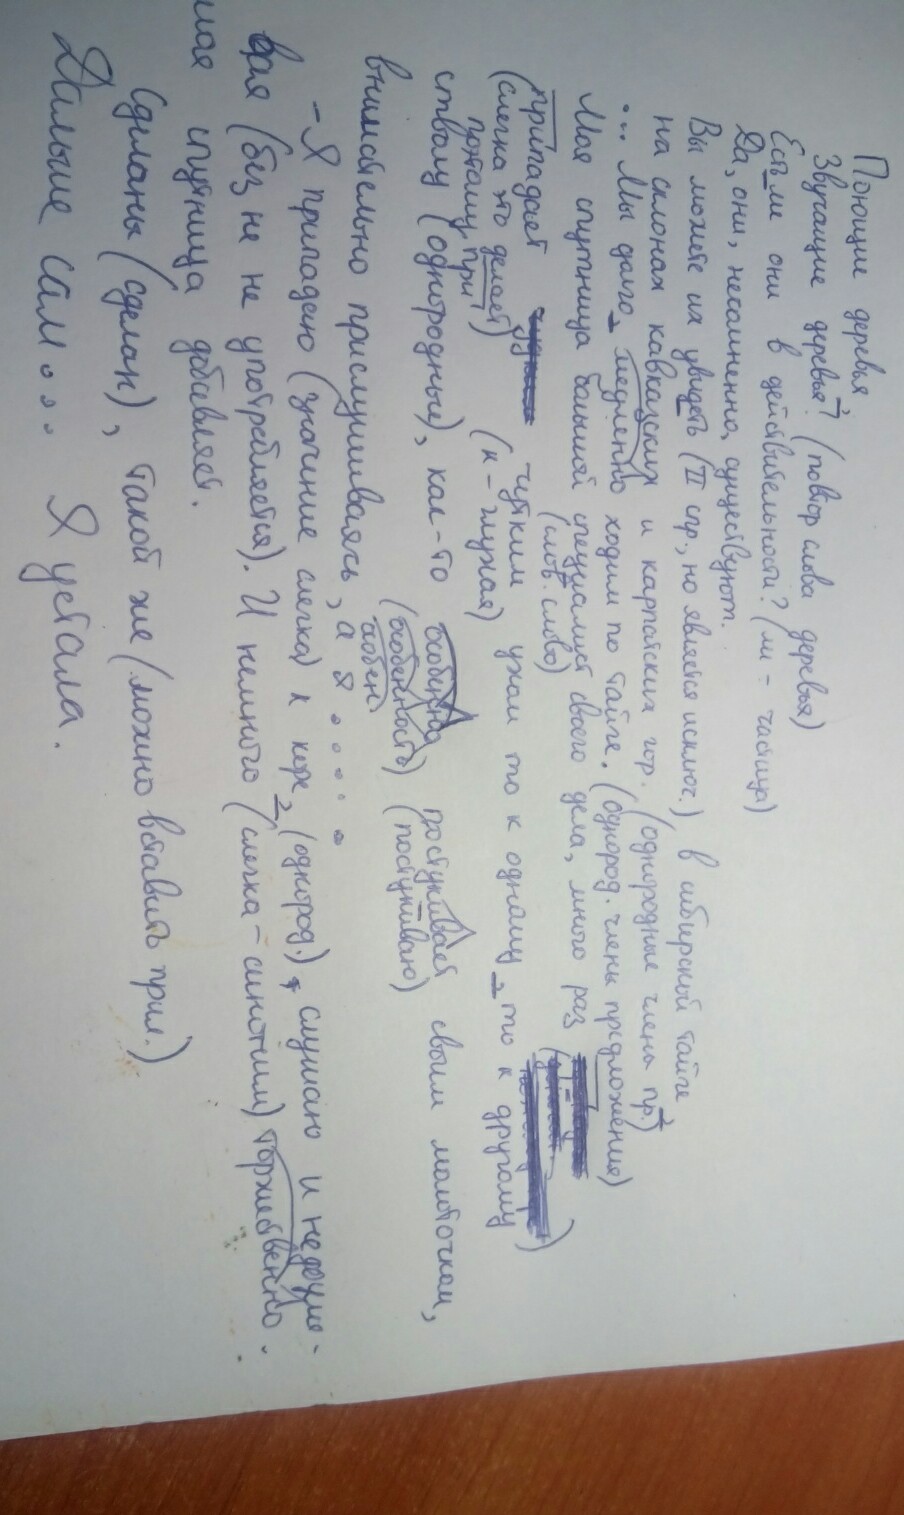 Поющие деревья.
Звучащие деревья? (повтор слова деревья)
Есть ли они в действительности? (ли - частица)
Да, они, несомненно, существуют.
Вы можете их увидеть (II спр., но является исключ.), в сибирской тайге
на склонах кавказских и карпатских гор. (однородные члены пр.)
... Мы долго, медленно ходим по тайге. (однород. члены предложения)
Моя спутница большой специалист своего дела, много раз
(слов. слово)
припадает чутким ухом то к одному, то к другому
(слегка это делает) (к - глухая)
поэтому при
стволу (однородные), как-то особенно постукивает своим молоточком,
(особенность) (постукиваю)
особен
внимательно прислушиваясь, а я . . . . .
- Я припадено (значение слегка) к коре, (однород.), слушаю и недоуме-
вая (без не не употребляется). И немного (слегка - синоним) торжественно.
моя спутница добавляет.
Сделаны (сделан), такой же (можно вставить прил.)
Дальше сам... Я устала.